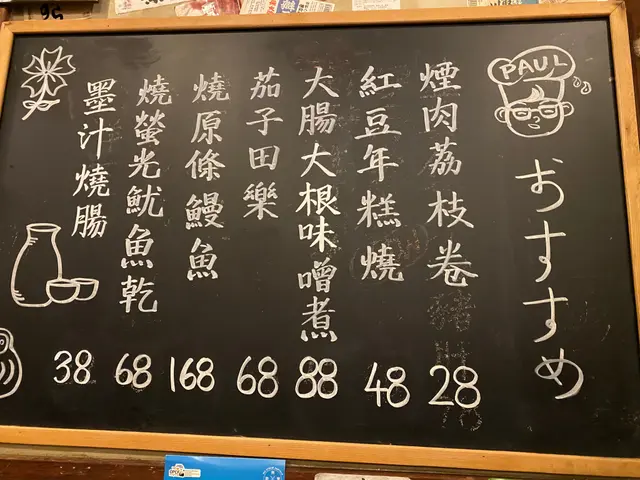 PAUL
おすすめ
煙肉荔枝卷 28
紅豆年糕燒 48
大腸大根味噌煮 88
茄子田樂 68
燒原條鰻魚 168
燒螢光魷魚乾 68
墨汁燒腸 38